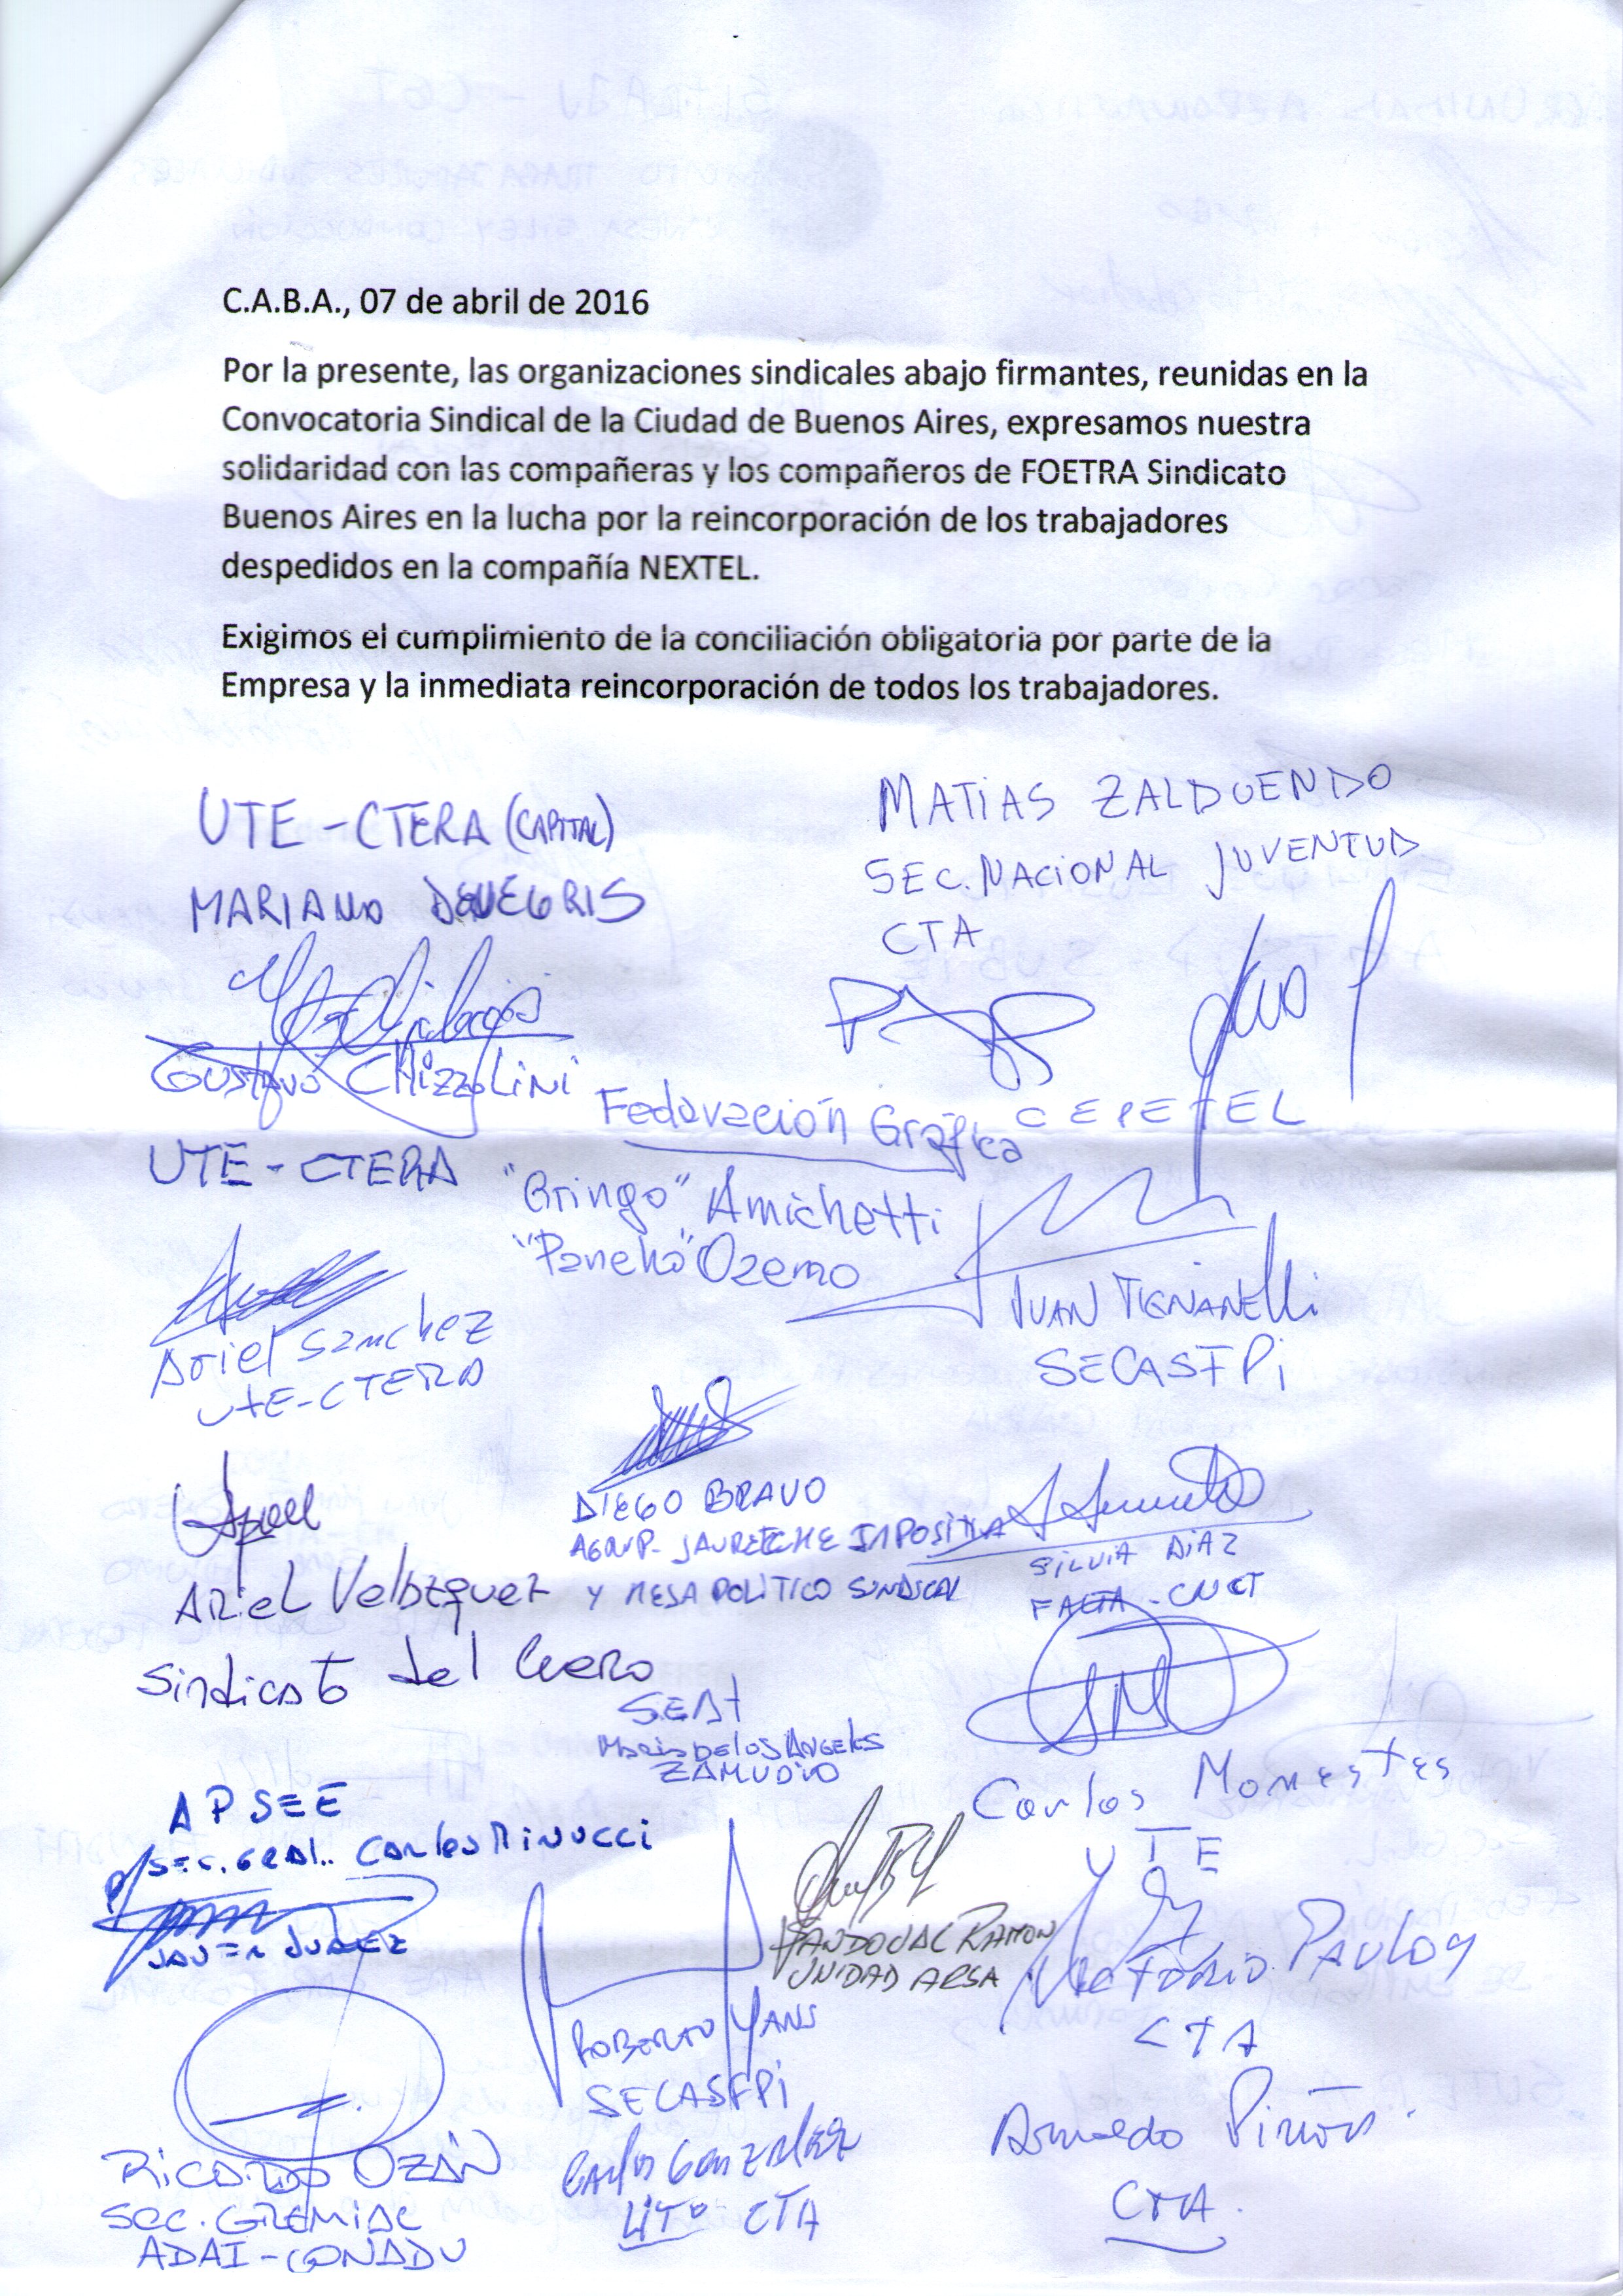 C.A.B.A., 07 de abril de 2016
Por la presente, las organizaciones sindicales abajo firmantes, reunidas en la
Convocatoria Sindical de la Ciudad de Buenos Aires, expresamos nuestra
solidaridad con las compañeras y los compañeros de FOETRA Sindicato
Buenos Aires en la lucha por la reincorporación de los trabajadores
despedidos en la compañía NEXTEL.
Exigimos el cumplimiento de la conciliación obligatoria por parte de la
Empresa y la inmediata reincorporación de todos los trabajadores.
UTE - CTERA (CAPITAL)
MARIANO DENEGRIS
MATIAS ZALDUENDO
SEC. NACIONAL JUVENTUD
CTA
GUSTAVO CHIZZOLINI
UTE - CTERA
Federación Gráfica
"Gringo" Amichetti
"Pancho" Ozemo
CEPETEL
JUAN TIGNANELLI
SECASFPI
Ariel Sanchez
UTE-CTERA
DIEGO BRAVO
AGRUP. JAURETCHE IMPOSITIVA
Y MESA POLÍTICO SINDICAL
SILVIA DIAZ
FAETA - CNCT
Ariel Velazquez
Sindicato del Cuero
SEAT
Maria DE LOS ANGELES
ZAMUDIO
Carlos Monestes
UTE
APSEE
SEC. GRAL. CARLOS MINUCCI
JAVIER JUAREZ
SANDOVAL RAMON
UNIDAD ARSA
Victorio Paulon
CTA
ROBERTO YANS
SECASFPI
RICARDO OZÁN
SEC. GREMIAL
ADAI - CONADU
Carlos GONZALEZ
LITO CTA
Piñón
CTA.